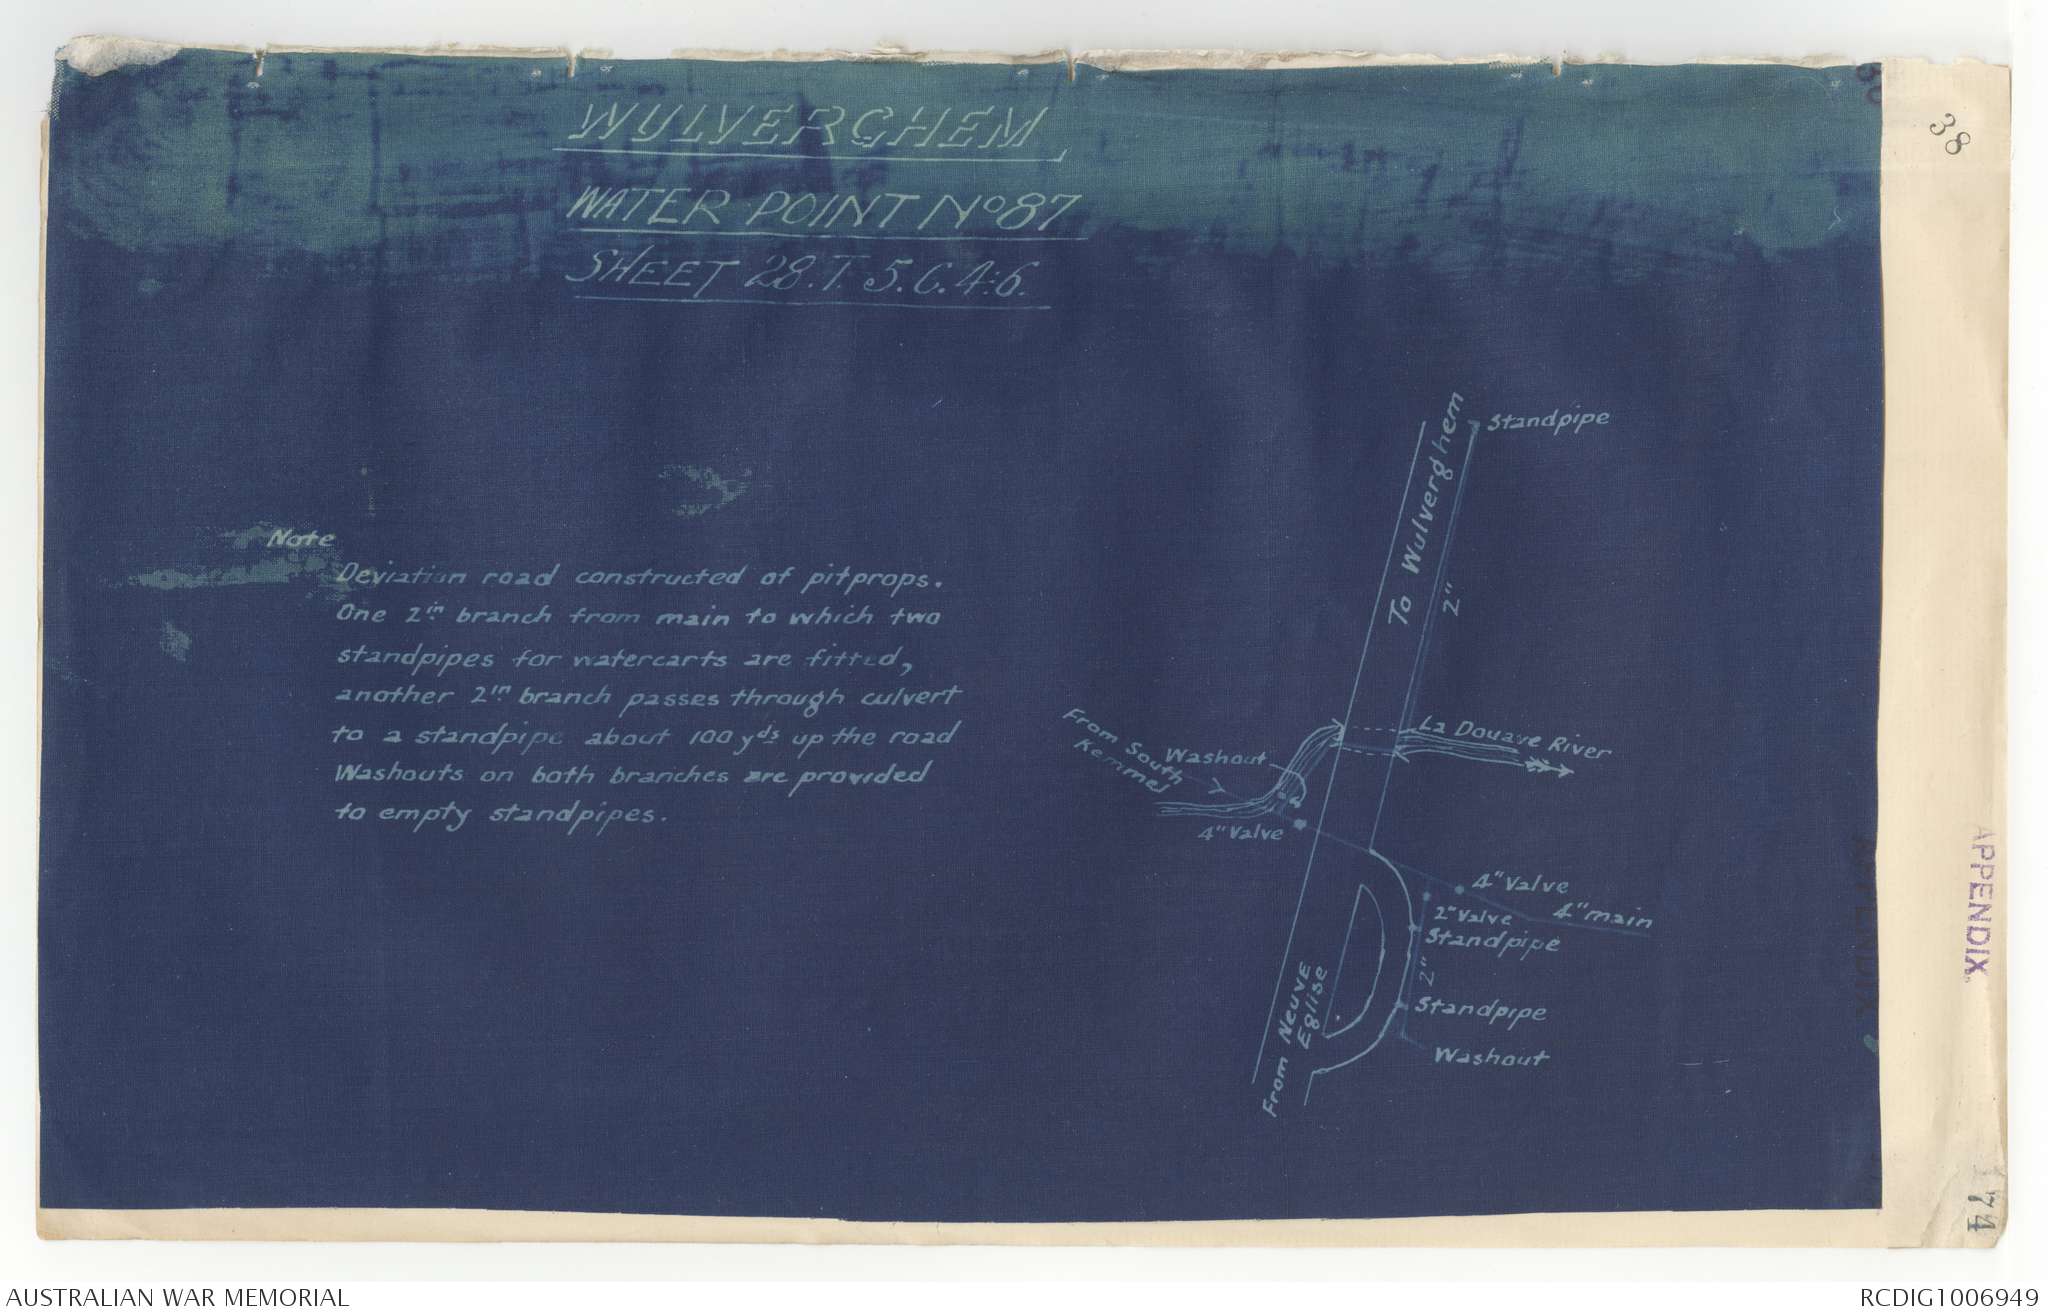 WULVERGHEM
WATER POINT No 87
SHEET 28.T.5.C.4:6.
38
Note
Deviation road constructed of pitprops.
One 2in branch from main to which two
standpipes for watercarts are fitted,
another 2in branch passes through culvert
to a standpipe about 100 yds up the road
Washouts on both branches are provided
to empty standpipes.
Standpipe
To Wulverghem
2"
La Douave River
From South
Kemmel
Washout
4" Valve
4" Valve
4" main
2" Valve
Standpipe
2"
Standpipe
Washout
From Neuve
Eglise
APPENDIX.
74
AUSTRALIAN WAR MEMORIAL
RCDIG1006949